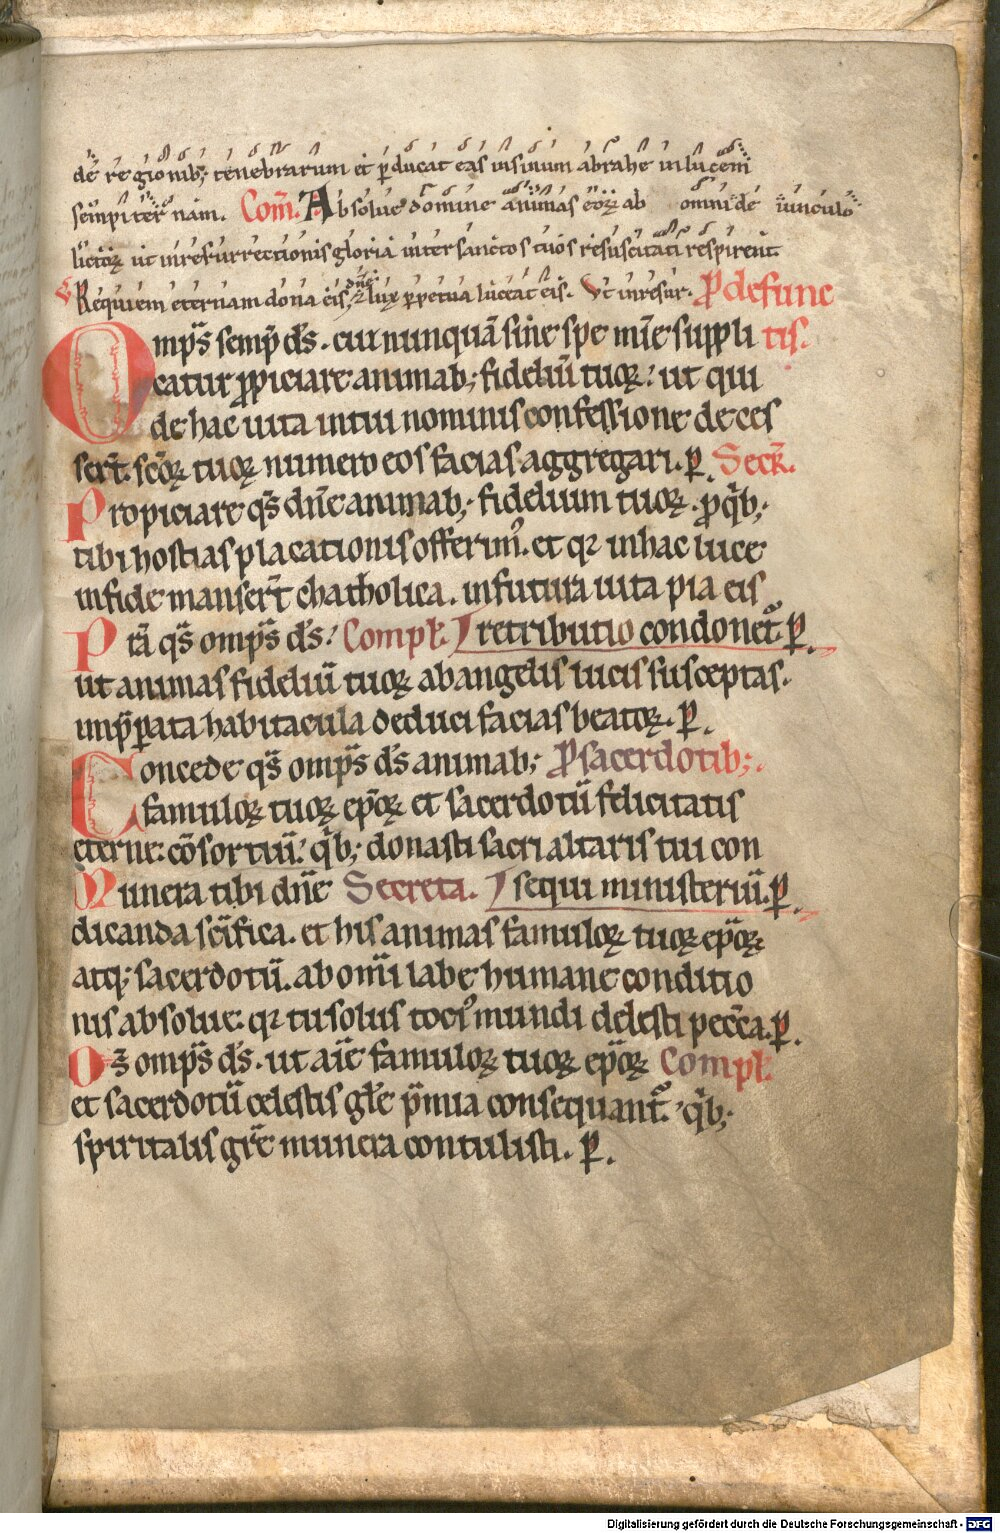 de regionib; tenebrarum et p̱ducat eas insinum abrahe inlucem
sempiternam. Com̄. Absolue domine animas eoꝝ ab omni de uinculo
lictoꝝ ut inresurrectionis gloria inter sanctos tuos resuscitati respirent
Requiem eternam dona eis dn̄e & lux ꝑpetua luceat eis. Ut inresur. ꝓ defunc
Omp̄s semp̄ ds̄. cui nunquā sine spe mīe suppli tis.
catur ꝓpiciare animab; fideliū tuoꝝ: ut qui
de hac uita intui nominis confessione deces
serт̄. scōꝝ tuoꝝ numero eos facias aggregari. ꝑ. Secr̄.
Propiciare qs̄ dn̄e animab; fidelium tuoꝝ. ꝓ qͥb;
tibi hostias placationis offerimꝰ. et qꝛ inhac luce
infide manserт̄ chatholica. infutura uita pia eis
Prā qs̄ omp̄s ds̄: Compl̄. retributio condonet᷑. ꝑ.
ut animas fideliū tuoꝝ abangelis lucis susceptas.
inp̄parata habitacula deduci facias beatoꝝ. ꝑ.
Concede qs̄ omp̄s ds̄ animab; ꝓ sacerdotib;.
famuloꝝ tuoꝝ ep̄oꝝ et sacerdotū felicitatis
eterne cōsortiū: qͥb; donasti sacri altaris tui con
Munera tibi dn̄e Secreta. sequi ministeriū. ꝑ.
dicanda sc̄ifica. et his animas famuloꝝ tuoꝝ ep̄oꝝ
atq; sacerdotū. ab om̄i labe humane conditio
nis absolue. qꝛ tu solus tociꝰ mundi delesti pecc̄a. ꝑ.
Qs̄ omp̄s ds̄. ut aīe famuloꝝ tuoꝝ ep̄oꝝ Compl̄.
et sacerdotū celestis gl̄e p̄mia consequant᷑. qͥb;
spiritalis gr̄e munera contulisti. ꝑ.
Digitalisierung gefördert durch die Deutsche Forschungsgemeinschaft - DFG